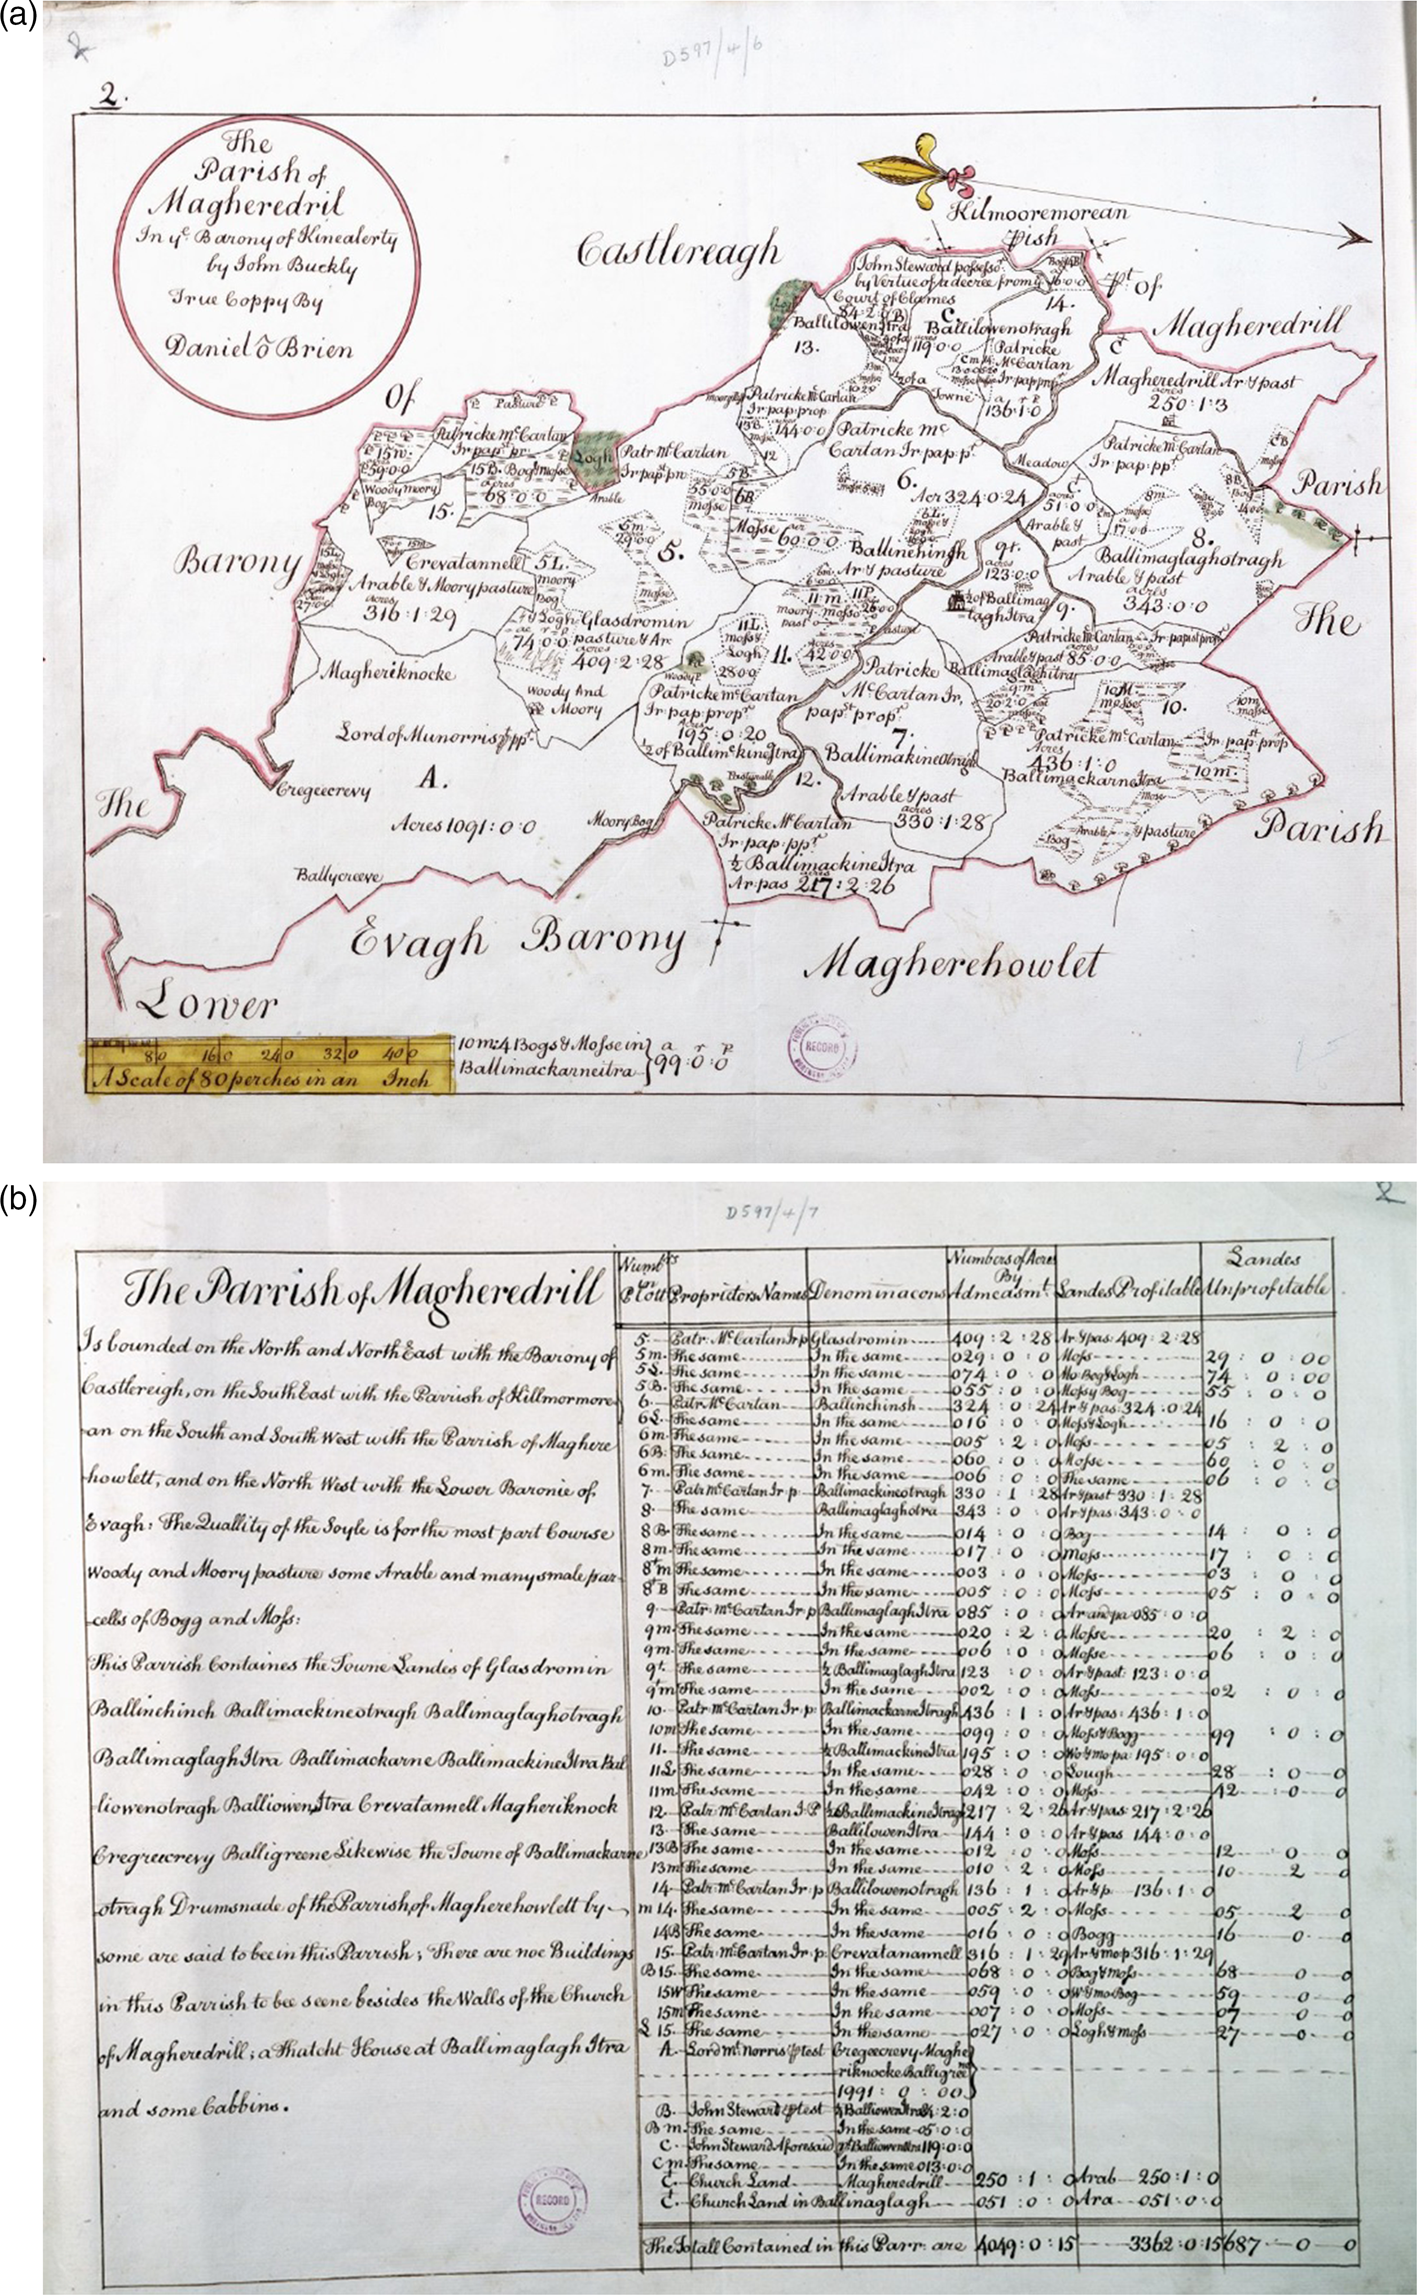 (a)
2
D597/4/6
2.
The
Parish of
Magheredril
In ye Barony of Kinealerty
by John Buckly
True Coppy By
Daniel õ Brien
Kilmooremorean
Pish
Castlereagh
John Steward possessor
by Vertue of a decree from ye
Court of Clames
84:2:0 (B)
14.
Pt of
Magheredrill
Ballilowen Itra
13.
C.
Ballilowenotragh
119:0:0
Patricke
McCartan
Ir pap prop
136:1:0
½ of a
Towne
Magheredrill Ar & past
acres
250:1:3
Of
Pasture
Patricke McCartan
Ir pap pr
15W.
59:0:0
15B. Bog & Mosse
acres
68:0:0
Woody Moory
Bog
15.
Logh
Patr McCartan
Ir pap pr
Arable
Patricke McCartan
Ir pap prop
144:0:0
13B
Mosse
12
Patricke Mc
Cartan Ir pap pt
6.
Acr 324:0:24
Meadow
Patricke McCartan
Ir pap ppt
Parish
5B
55:0:0
mosse
6B
Mosse
60:0:0
acres
51:0:0
Arable &
past
8m
mosse
17:0:0
8B
Bog
14:0:0
8.
Ballimaglaghotragh
Arable & past
acres
343:0:0
Barony
Crevatannell
Arable & Moory pasture
acres
316:1:29
15L
27:0:0
5m
29:0:0
5.
5L
moory
Bog
mosse
Ballinehingh
Ar & pasture
9t.
acres
123:0:0
½ of Ballimag
laghItra
9.
The
& Logh
74:0:0
Glasdromin
pasture & Ar
acres
409:2:28
11L
mosse
Logh
28:0:0
11.
11m
moory mosse
past
42:0:0
11P
26:0:0
Pasture
Patricke McCartan Ir papist prop
Arable & past 85:0:0
Ballimaglaghitra
9m
20:2:0
Magheriknocke
Woody And
Moory
Woody
Patricke McCartan
Ir pap propr
acres
195:0:20
½ of BallimckineItra
Patricke
McCartan Ir,
papst propr
7.
Ballimakineotragh
10M
mosse
10.
10m
mosse
Patricke McCartan Ir pap prop
Acres
436:1:0
BallimackarneItra
10m.
Mosse
Lord of Munorris ppt
A.
Cregeecrevy
The
Acres 1091:0:0
Moory Bog
Pasturable
12.
Arable & past
acres
330:1:28
Bog
Arable
& pasture
Parish
Patricke McCartan
Ir pap ppt
½ BallimackineItra
Ar pas 217:2:26
Ballycreeve
Evagh Barony
Magherehowlet
Lower
80 160 240 320 400
A Scale of 80 perches in an Inch
10m:4 Bogs & Mosse in
Ballimackarneitra
a r p
99:0:0
RECORD
(b)
D597/4/7
2
The Parrish of Magheredrill
Is bounded on the North and North East with the Barony of
Castlereigh, on the South East with the Parrish of Killmormore
an on the South and South West with the Parrish of Maghere
howlett, and on the North West with the Lower Baronie of
Evagh: The Quallity of the Soyle is for the most part Courise
Woody and Moory pasture some Arable and many smale par
cells of Bogg and Moss:
This Parrish Containes the Towne Landes of Glasdromin
Ballinchinch Ballimackineotragh Ballimaglaghotragh
BallimaglaghItra Ballimackarne BallimackineItra Bal
liowenotragh BalliowenItra Crevatannell Magheriknock
Cregreecrevy Balligreene Likewise the Towne of Ballimackarne
otragh Drumsnade of the Parrish of Magherehowlett by
some are said to bee in this Parrish; There are noe Buildings
in this Parrish to bee seene besides the Walls of the Church
of Magheredrill; a Thatcht House at Ballimaglagh Itra
and some Cabbins.
Numbrs in Plott Proprietors Names Denominacons Numbers of Acres By Admeasmt. Landes Profitable Landes Unprofitable
5. Patr. McCartan Ir p Glasdromin 409:2:28 Ar & pas 409:2:28
5m. The same In the same 029:0:0 Moss 29:0:00
5L. The same In the same 074:0:0 Mo Bog & Logh 74:0:00
5B. The same In the same 055:0:0 Mossy Bog 55:0:0
6. Patr McCartan Ballinchinsh 324:0:24 Ar & pas 324:0:24
6L. The same In the same 016:0:0 Moss & Logh 16:0:0
6m. The same In the same 005:2:0 Moss 05:2:0
6B. The same In the same 060:0:0 Mosse 60:0:0
6m. The same In the same 006:0:0 The same 06:0:0
7. Patr McCartan Ir p Ballimackineotragh 330:1:28 Ar & past 330:1:28
8. The same Ballimaglaghotra 343:0:0 Ar & pas 343:0:0
8B The same In the same 014:0:0 Bog 14:0:0
8m. The same In the same 017:0:0 Moss 17:0:0
8tm The same In the same 003:0:0 Moss 03:0:0
8tB The same In the same 005:0:0 Moss 05:0:0
9. Patr. McCartan Ir p BallimaglaghItra 085:0:0 Ar and pa 085:0:0
9m The same In the same 020:2:0 Mosse 20:2:0
9m. The same In the same 006:0:0 Mosse 06:0:0
9t. The same ½ BallimaglaghItra 123:0:0 Ar & past 123:0:0
9tm The same In the same 002:0:0 Moss 02:0:0
10. Patr McCartan Ir p: BallimackarneItragh 436:1:0 Ar & pas: 436:1:0
10m The same In the same 099:0:0 Moss & Bogg 99:0:0
11. The same ½ BallimackineItra 195:0:0 Wo & mo pa 195:0:0
11L The same In the same 028:0:0 Lough 28:0:0
11m The same In the same 042:0:0 Moss 42:0:0
12. Patr. McCartan I P ½ BallimackineItragh 217:2:26 Ar & pas 217:2:26
13. The same BallilowenItra 144:0:0 Ar & pas 144:0:0
13B The same In the same 012:0:0 Moss 12 0 0
13m The same In the same 010:2:0 Moss 10 2 0
14. Patr McCartan Ir p Ballilowenotragh 136:1:0 Ar & p 136:1:0
m 14. The same In the same 005:2:0 Moss 05 2 0
14B The same In the same 016:0:0 Bogg 16 0 0
15. Patr. McCartan Ir p. Crevatanannell 316:1:29 Ar & mo p 316:1:29
B 15. The same In the same 068:0:0 Bog & moss 68 0 0
15W The same In the same 059:0:0 W & mo Bog 59 0 0
15m The same In the same 007:0:0 Moss 07 0 0
L 15. The same In the same 027:0:0 Logh & moss 27 0 0
A. Lord Mt Norris ptest Cregeecrevy Maghe
riknocke Balligree
1991:0:00
B. John Steward ptest ½ BalliowenItra 84:2:0
B m. The same In the same 05:0:0
C. John Steward Aforesaid 119:0:0
C m. The same In the same 013:0:0
C. Church Land Magheredrill 250:1:0 Arab 250:1:0
C. Church Land in Ballinaglagh 051:0:0 Ara 051:0:0
The Totall Contained in this Parr. are 4049:0:15 3362:0:15 687 0 0
RECORD